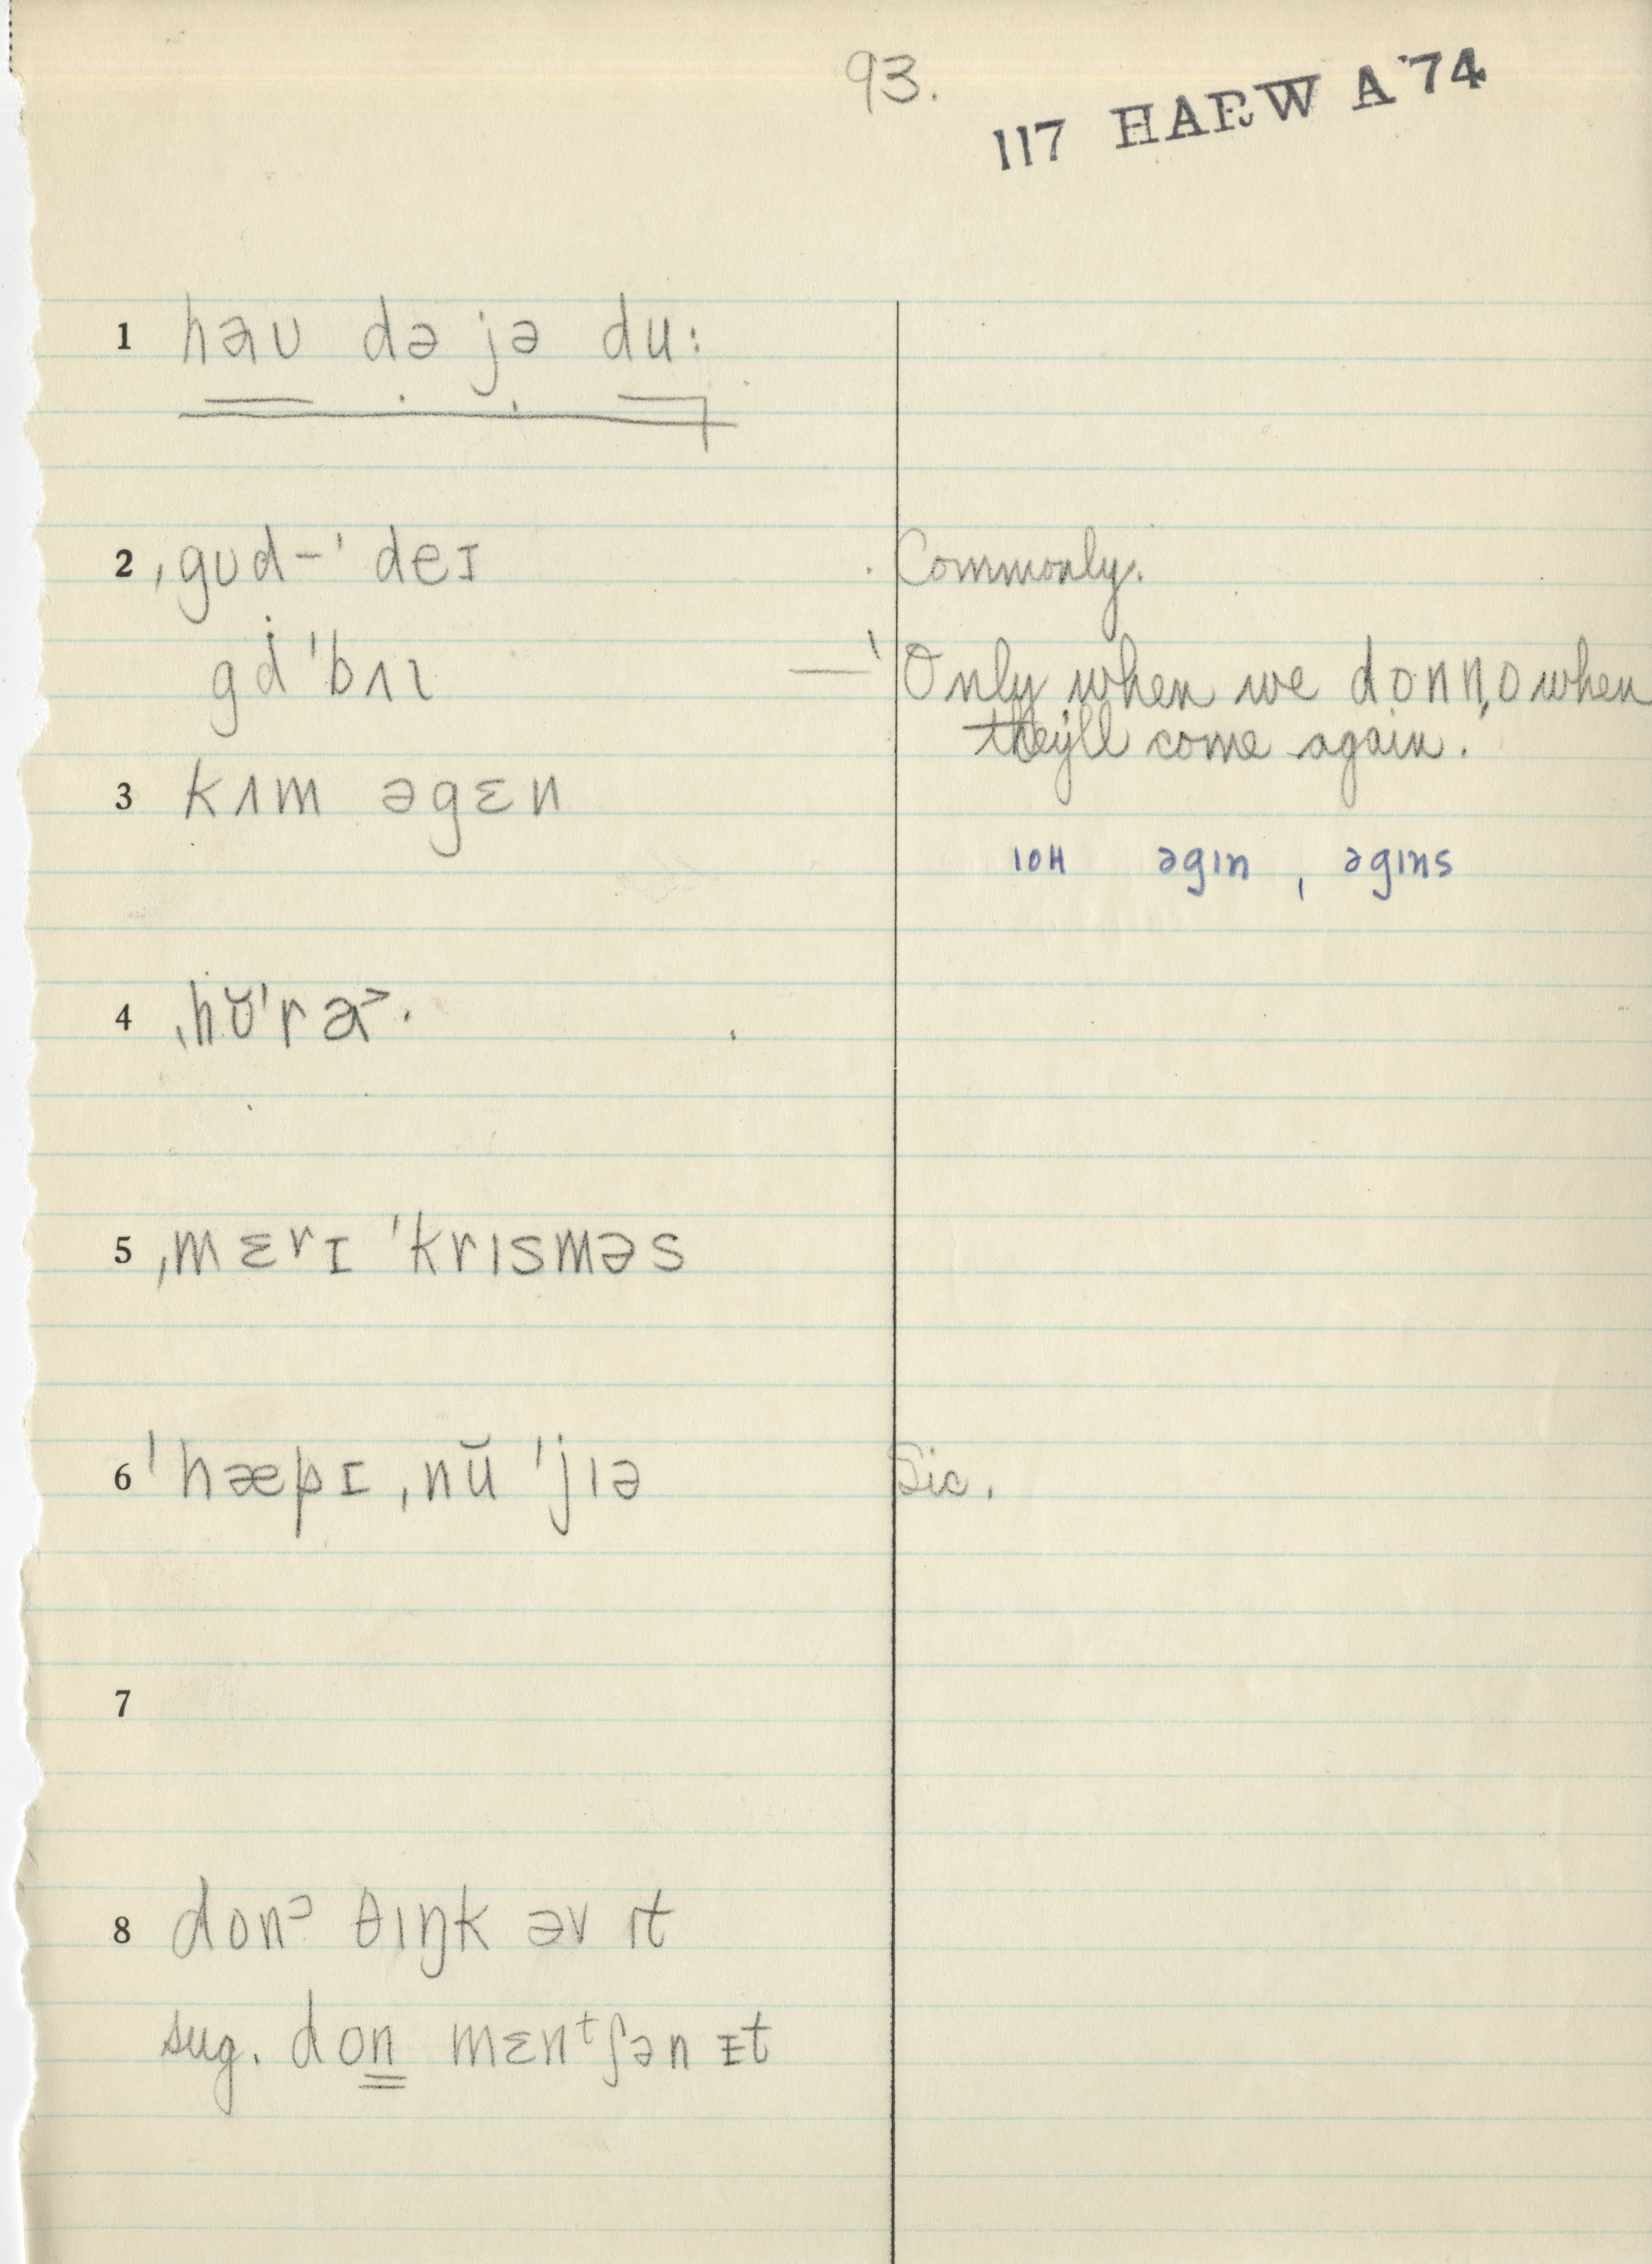 93.
117 HARW A '74
1 həʊ də jə du:
2 ˌgʊd-ˈdeɪ Commonly.
gd ˈbʌɪ —ˈ Only when we donn̩o when
they'll come again.
3 kʌm əgɛn
10H əgɪn , əgɪns
4 ˌhʊ̆ˈra˃·
5 ˌmɛrɪ ˈkrɪsməs
6 ˈhæpɪ ˌnŭ ˈjɪə Sic.
7
8 donˀ θɪŋk əv ɪt
sug. don mɛnᵗʃən ɪt